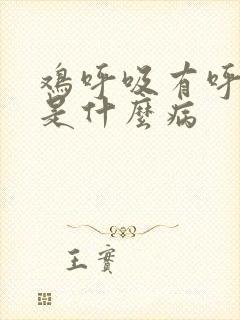 鸡呼吸有呼
是什麼病
王實